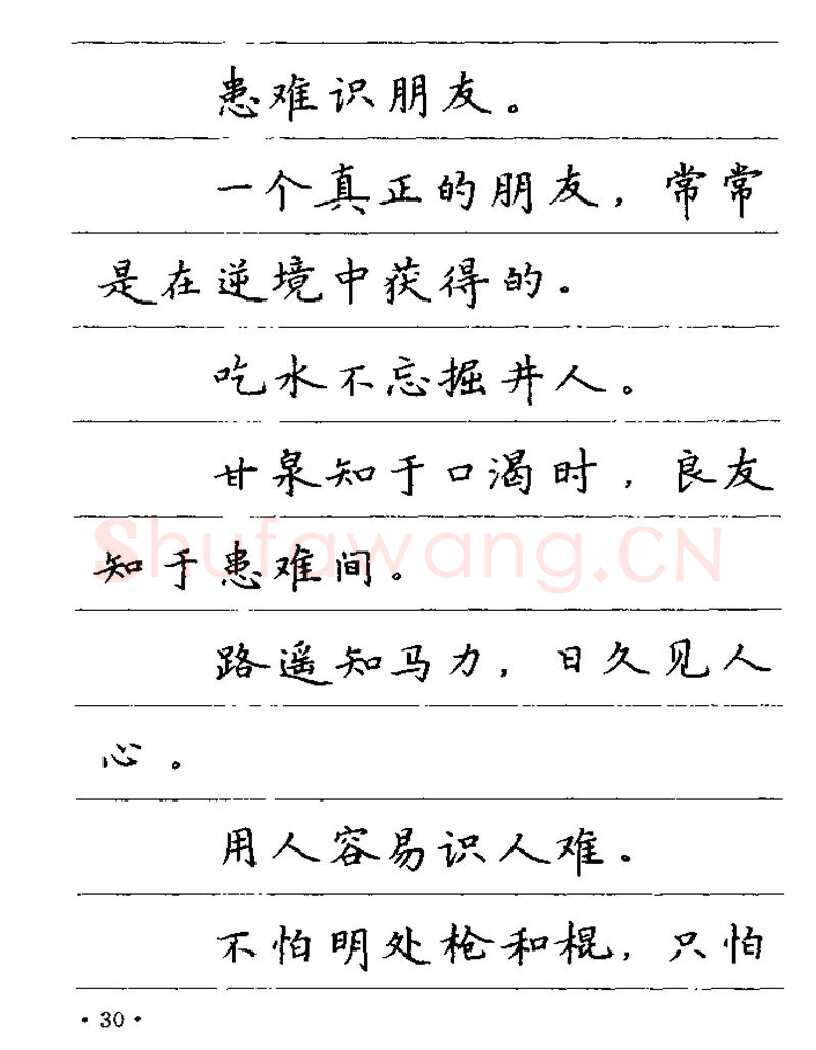 患难识朋友。
一个真正的朋友，常常
是在逆境中获得的。
吃水不忘掘井人。
甘泉知于口渴时，良友
知于患难间。
Shufawang.CN
路遥知马力，日久见人
心。
用人容易识人难。
不怕明处枪和棍，只怕
·30·